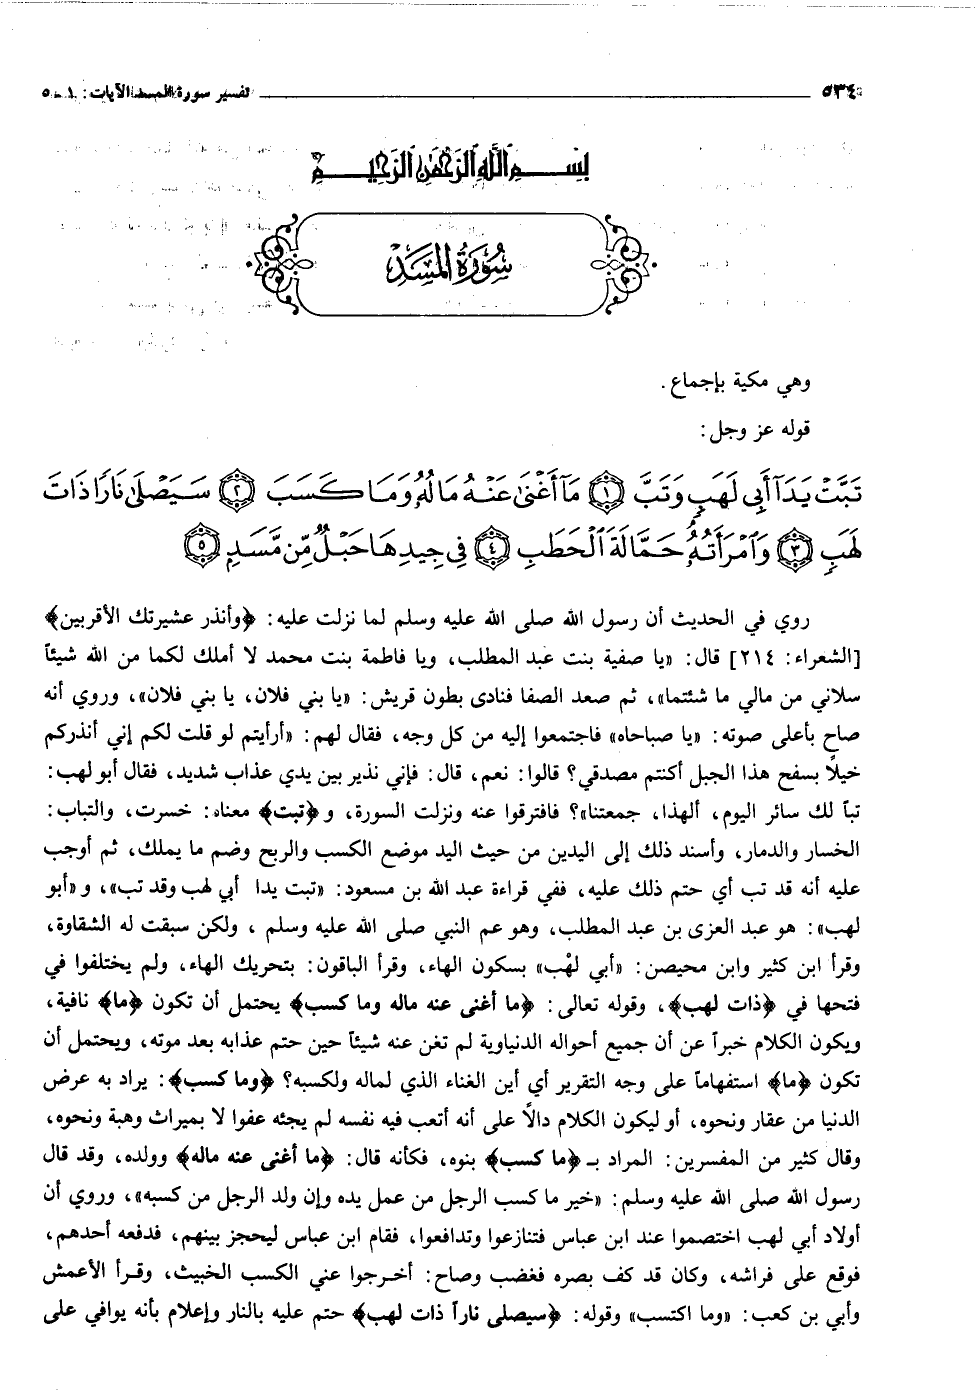 ٥٣٤ تفسير سورة المسد/الآيات: ١ - ٥
بِسْمِ اللَّهِ الرَّحْمَٰنِ الرَّحِيمِ
سُورَةُ المَسَدِ
وهي مكية بإجماع.
قوله عز وجل:
تَبَّتْ يَدَآ أَبِى لَهَبٍ وَتَبَّ ﴿١﴾ مَآ أَغْنَىٰ عَنْهُ مَالُهُۥ وَمَا كَسَبَ ﴿٢﴾ سَيَصْلَىٰ نَارًا ذَاتَ
لَهَبٍ ﴿٣﴾ وَٱمْرَأَتُهُۥ حَمَّالَةَ ٱلْحَطَبِ ﴿٤﴾ فِى جِيدِهَا حَبْلٌ مِّن مَّسَدٍۭ ﴿٥﴾
روي في الحديث أن رسول الله صلى الله عليه وسلم لما نزلت عليه: ﴿وأنذر عشيرتك الأقربين﴾
[الشعراء: ٢١٤] قال: «يا صفية بنت عبد المطلب، ويا فاطمة بنت محمد لا أملك لكما من الله شيئاً
سلاني من مالي ما شئتما»، ثم صعد الصفا فنادى بطون قريش: «يا بني فلان، يا بني فلان»، وروي أنه
صاح بأعلى صوته: «يا صباحاه» فاجتمعوا إليه من كل وجه، فقال لهم: «أرأيتم لو قلت لكم إني أنذركم
خيلاً بسفح هذا الجبل أكنتم مصدقي؟ قالوا: نعم، قال: فإني نذير بين يدي عذاب شديد، فقال أبو لهب:
تباً لك سائر اليوم، ألهذا، جمعتنا»؟ فافترقوا عنه ونزلت السورة، و﴿تبت﴾ معناه: خسرت، والتباب:
الخسار والدمار، وأسند ذلك إلى اليدين من حيث اليد موضع الكسب والربح وضم ما يملك، ثم أوجب
عليه أنه قد تب أي حتم ذلك عليه، ففي قراءة عبد الله بن مسعود: «تبت يدا أبي لهب وقد تب»، و «أبو
لهب»: هو عبد العزى بن عبد المطلب، وهو عم النبي صلى الله عليه وسلم ، ولكن سبقت له الشقاوة،
وقرأ ابن كثير وابن محيصن: «أبي لهْب» بسكون الهاء، وقرأ الباقون: بتحريك الهاء، ولم يختلفوا في
فتحها في ﴿ذات لهب﴾، وقوله تعالى: ﴿ما أغنى عنه ماله وما كسب﴾ يحتمل أن تكون ﴿ما﴾ نافية،
ويكون الكلام خبراً عن أن جميع أحواله الدنياوية لم تغن عنه شيئاً حين حتم عذابه بعد موته، ويحتمل أن
تكون ﴿ما﴾ استفهاماً على وجه التقرير أي أين الغناء الذي لماله ولكسبه؟ ﴿وما كسب﴾: يراد به عرض
الدنيا من عقار ونحوه، أو ليكون الكلام دالاً على أنه أتعب فيه نفسه لم يجئه عفوا لا بميراث وهبة ونحوه،
وقال كثير من المفسرين: المراد بـ ﴿ما كسب﴾ بنوه، فكأنه قال: ﴿ما أغنى عنه ماله﴾ وولده، وقد قال
رسول الله صلى الله عليه وسلم: «خير ما كسب الرجل من عمل يده وإن ولد الرجل من كسبه»، وروي أن
أولاد أبي لهب اختصموا عند ابن عباس فتنازعوا وتدافعوا، فقام ابن عباس ليحجز بينهم، فدفعه أحدهم،
فوقع على فراشه، وكان قد كف بصره فغضب وصاح: أخرجوا عني الكسب الخبيث، وقرأ الأعمش
وأبي بن كعب: «وما اكتسب» وقوله: ﴿سيصلى ناراً ذات لهب﴾ حتم عليه بالنار وإعلام بأنه يوافي على